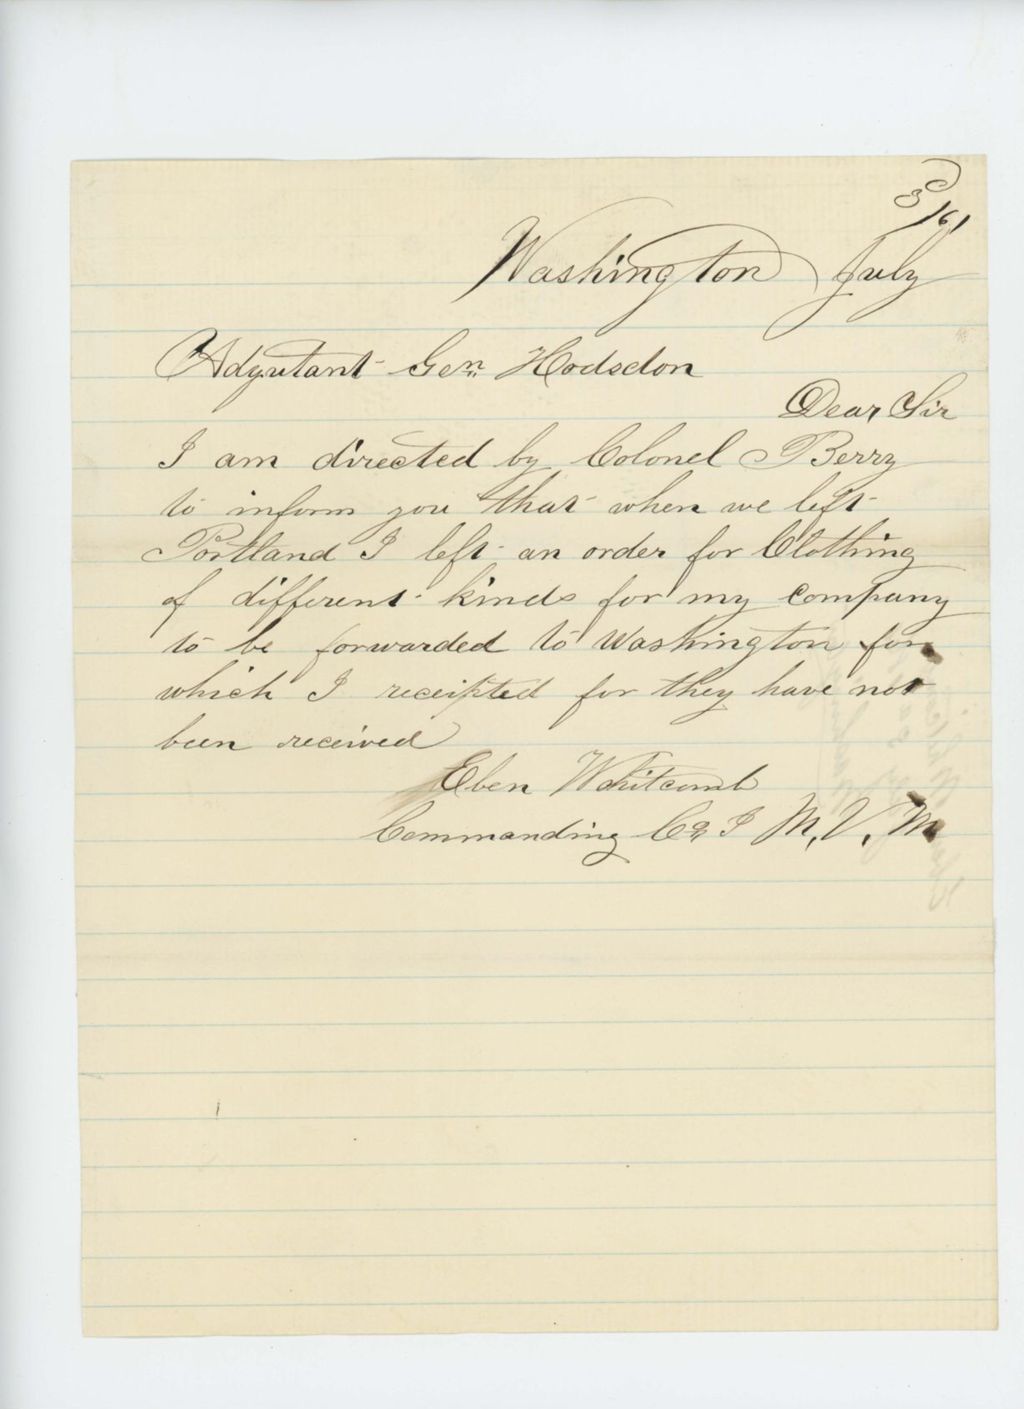 3d/61
Washington July
Adjutant Gen Hodsdon
Dear Sir
I am directed by Colonel Berry
to inform you that when we left
Portland I left an order for Clothing
of different kinds for my company
to be forwarded to Washington for
which I receipted for they have not
been received
Eben Whitcomb
Commanding Co I M.V.M